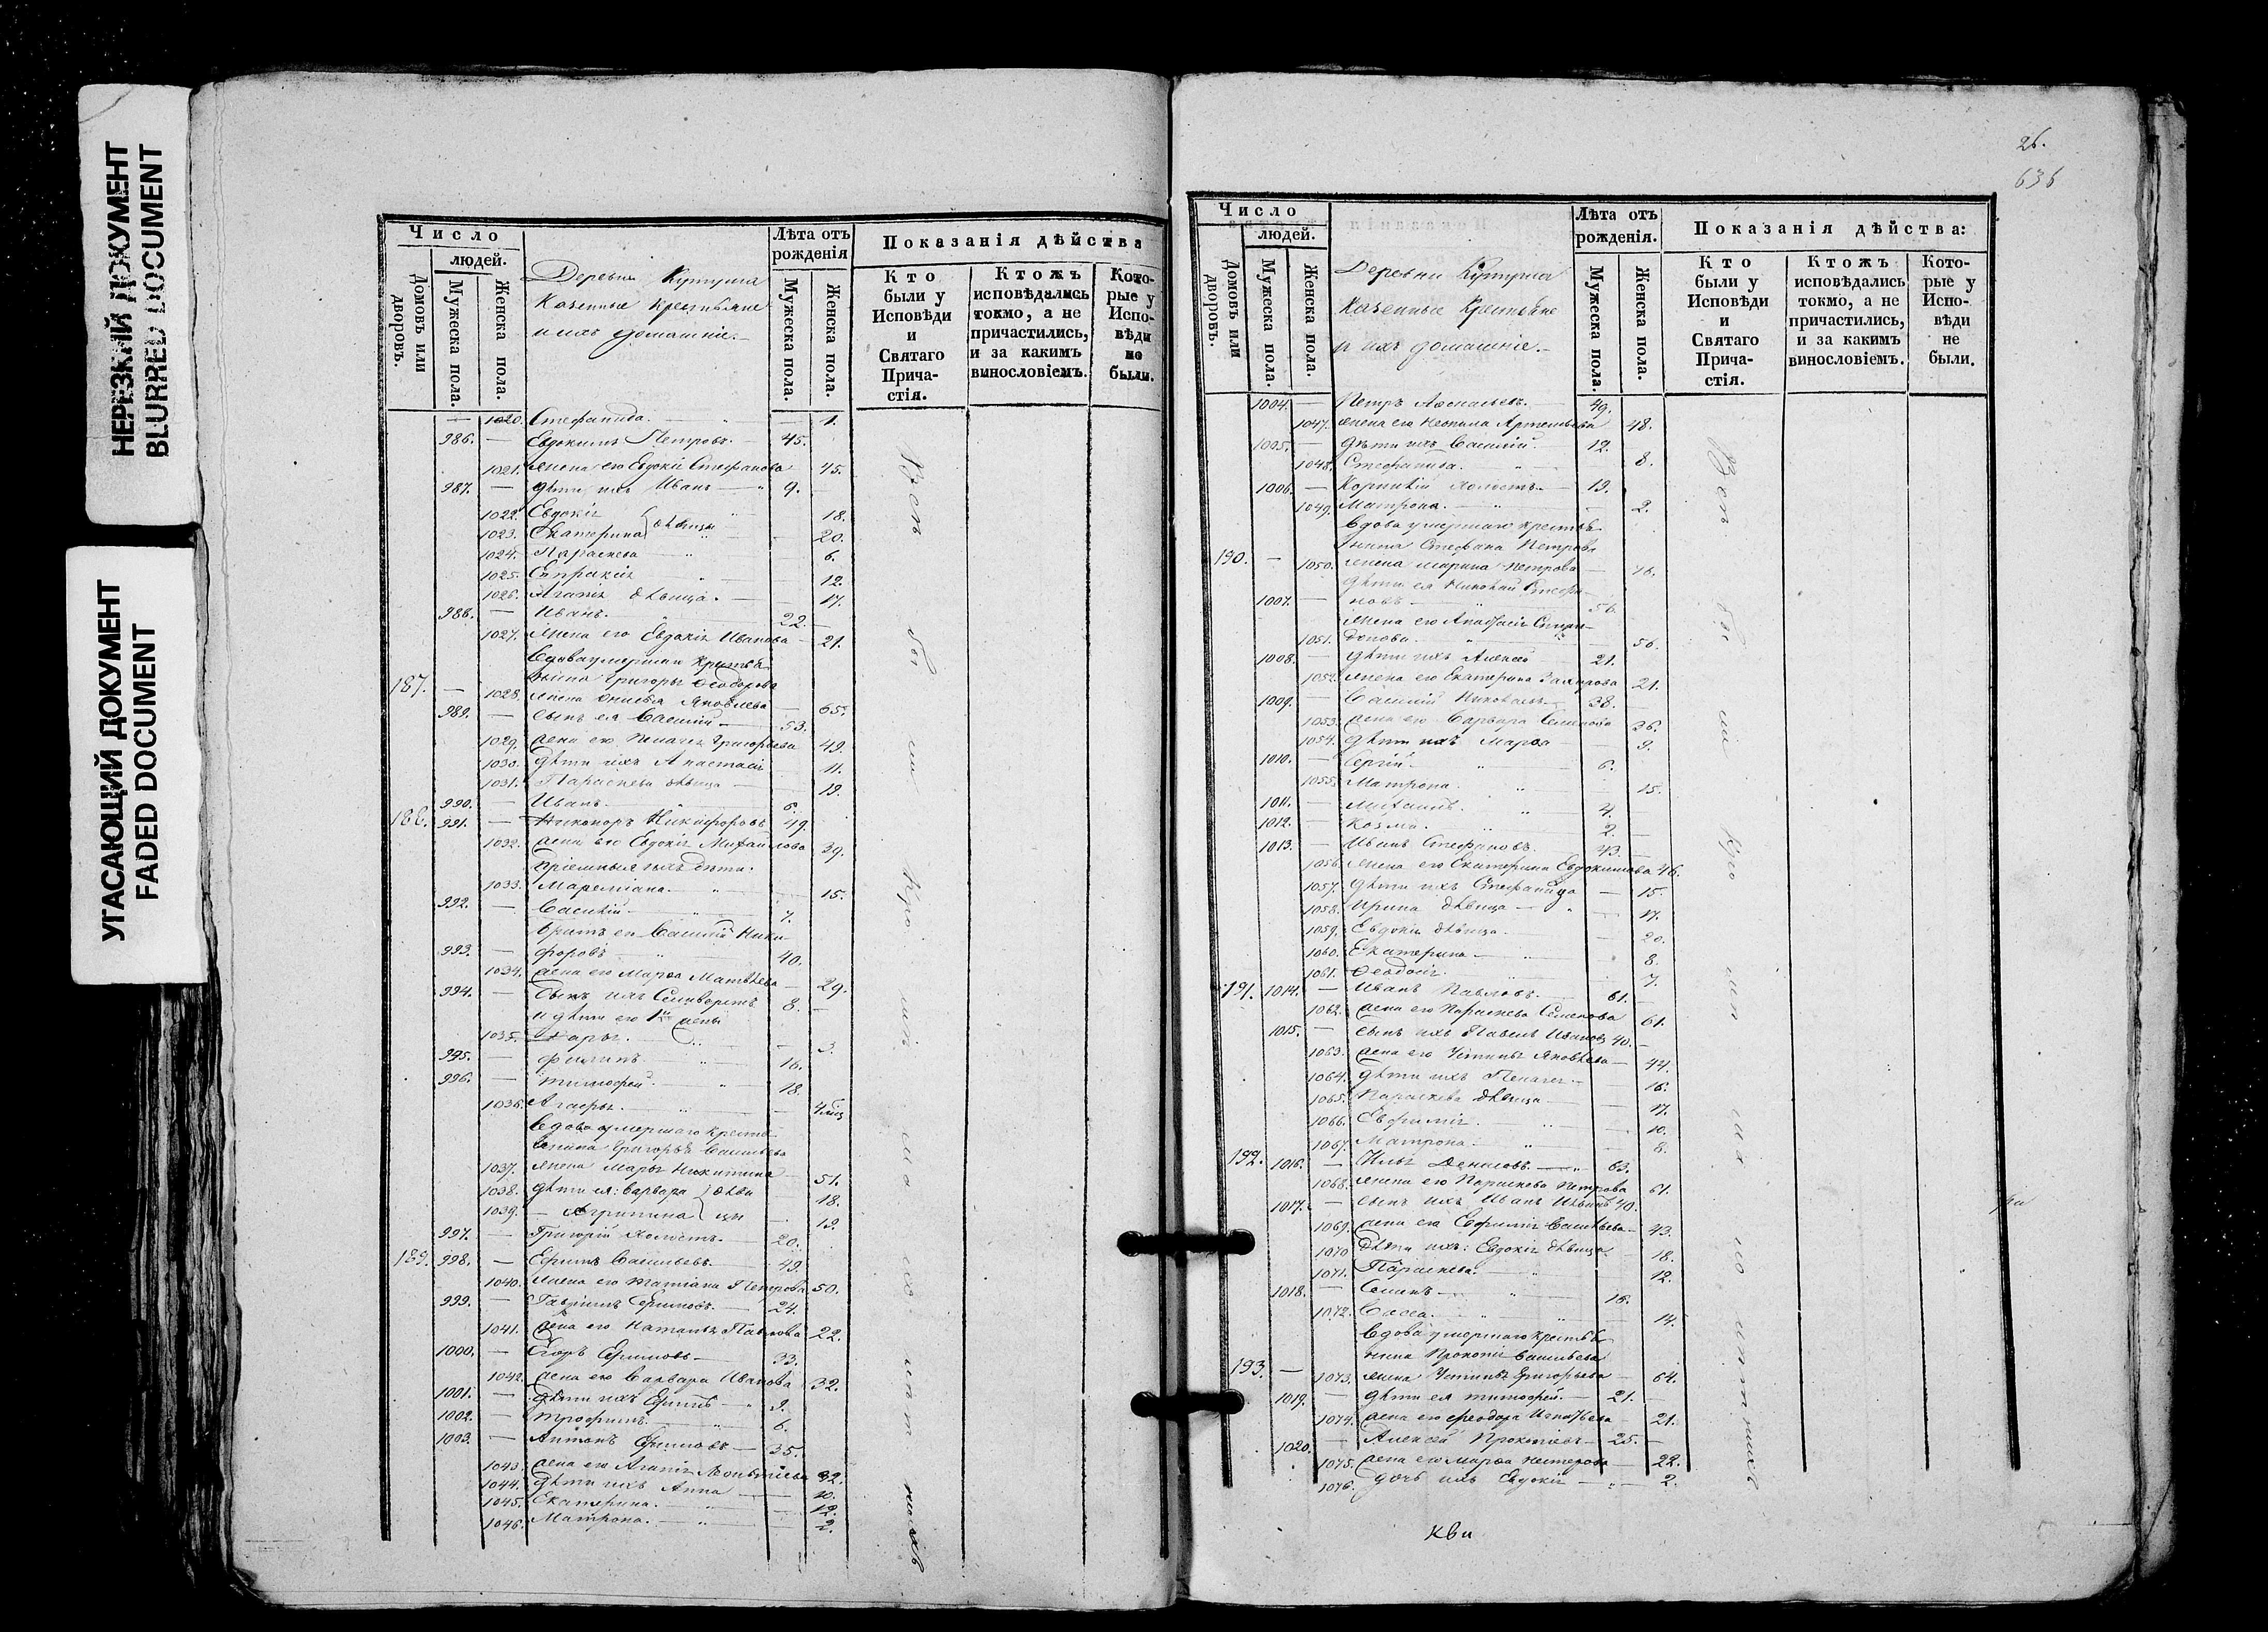 НЕРЕЗКИЙ ДОКУМЕНТ
BLURRED DOCUMENT
УГАСАЮЩИЙ ДОКУМЕНТ
FADED DOCUMENT
Число
людей.
Домовъ или дворовъ.
Мужеска пола.
Женска пола.
Казенные крестьяне
и ихъ домашніе.
Лѣта отъ рожденія
Мужеска пола.
Женска пола.
Показанія дѣйства
Кто были у Исповѣди и Святаго Причастія.
Ктожъ исповѣдались токмо, а не причастились, и за какимъ винословіемъ.
Которые у Исповѣди не были.
— 1020. Стефанида. — 1.
986. — Евдокимъ Петровъ. — 45.
1021. жена его Евдокія Стефанова 45.
987. — дѣти ихъ Иванъ — 9.
1022. Евдокія 18.
1023. Екатерина дѣвицы 20.
1024. Параскева 6.
1025. 12.
1026. Агапія дѣвица. — 17.
988. — Иванъ. 22.
1027. жена его Евдокія Иванова 21.
187. — 1028. жена Яковлева 65.
989. — сынъ ея Василій — 53.
1029. жена его Пелагея Григорьева 49.
1030. дѣти ихъ Анастасія 11.
1031. Параскева дѣвица 19.
990. — Иванъ. 6.
188. 991. — Никаноръ Никифоровъ 49.
1032. жена его Евдокія Михайлова 39.
пріемныя ихъ дѣти.
1033. 15.
992. — Василій — 7.
братъ его Василій Ники-
993. — форовъ 40.
1034. жена его Марѳа Матвѣева 29.
994. — сынъ ихъ 8.
и дѣти его 1й жены
1035. Дарья. 3.
995. — Филипъ. 16.
996. — Тимофей. 18.
1036.
Вдова умершаго кресть-
янина Григорья Васильева
1037. жена Марья Никитина 51.
1038. дѣти ея: Варвара дѣви 18.
1039. — Агрипина цы 19.
997. — Григорій холостъ. 20.
189. 998. — Ефимъ Васильевъ. 49.
1040. жена его Татіана Петрова 50.
999. — Гаврилъ Ефимовъ. 24.
1041. жена его Наталья Павлова 22.
1000. — Егоръ Ефимовъ — 33.
1042. жена его Варвара Иванова 32.
1001. — дѣти ихъ Ефимъ — 9.
1002. — Трофимъ. 6.
1003. — Антонъ Ефимовъ — 35.
1043. жена его Агапія Леонтіева 32.
1044. дѣти ихъ Анна 10.
1045. Екатерина. 12.
1046. Матрона. — 2.
26.
636
Число
людей.
Домовъ или дворовъ.
Мужеска пола.
Женска пола.
Казенные крестьяне
и ихъ домашніе.
Лѣта отъ рожденія.
Мужеска пола.
Женска пола.
Показанія дѣйства:
Кто были у Исповѣди и Святаго Причастія.
Ктожъ исповѣдались токмо, а не причастились, и за какимъ винословіемъ.
Которые у Исповѣди не были.
1004. — Петръ 49.
1047. жена его Артемьева 48.
1005. — дѣти ихъ Василій. 12.
1048. Стефанида. 8.
1006. — Корнилій холостъ. 19.
1049. Матрона. — 2.
Вдова умершаго кресть-
янина Стефана Петрова
190. — 1050. жена Марина Петрова 76.
дѣти ея Николай Стефа-
1007. — новъ — 56.
жена его Анастасія Спири-
1051. донова. 56.
1008. — дѣти ихъ Алексей 21.
1052. жена его Екатерина 21.
1009. — Василій Николаевъ 38.
1053. жена его Варвара 36.
1054. дѣти ихъ Марѳа 9.
1010. — Сергій. 6.
1055. Матрона. 15.
1011. — Михаилъ. 4.
1012. — Козма. 2.
1013. — Иванъ Стефановъ. 43.
1056. жена его Екатерина Евдокимова 46.
1057. дѣти ихъ Стефанида — 15.
1058. Ирина дѣвица — 17.
1059. Евдокія дѣвица. 20.
1060. Екатерина — 8.
1061. Ѳеодосія. 7.
191. 1014. — Иванъ Павловъ. 61.
1062. жена его Параскева Семенова 61.
1015. — сынъ ихъ Павелъ Ивановъ 40.
1063. жена его Устинья Яковлева 44.
1064. дѣти ихъ Пелагея — 16.
1065. Параскева дѣвица 17.
1066. Евфимія. 10.
1067. Матрона. 8.
192. 1016. — Илья Денисовъ. — 63.
1068. жена его Параскева Петрова 61.
1017. — сынъ ихъ Иванъ Ильинъ 40.
1069. жена его Евфимія Васильева 43.
1070 дѣти ихъ: Евдокія дѣвица 18.
1071. Параскева. 12.
1018. — 16.
1072. 14.
Вдова умершаго кресть-
янина Прокопія Васильева
193. — 1073. жена Устинья Григорьева 64.
1019. — дѣти ея Тимофей. — 21.
1074. жена его Ѳеодора Игнатьева 21.
1020. — Алексей Прокопіевъ — 25.
1075. жена его Марѳа Нестерова 22.
1076. дочь ихъ Евдокія — 2.